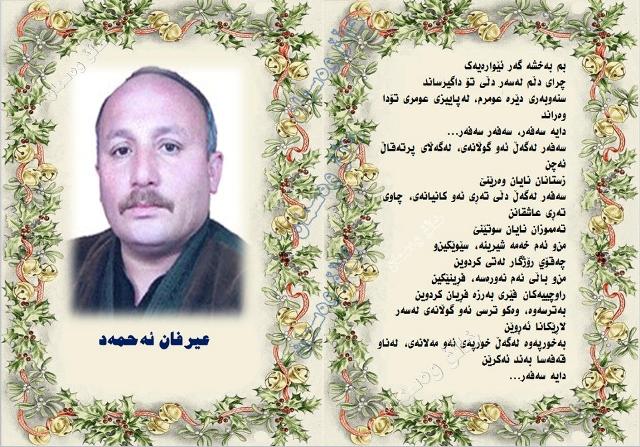 عیرفان ئەحمەد
بم بەخشە گەر ئێوارەیەک
چرای دڵم لەسەر دڵی تۆ داگیرساند
سنەوبەری دێرە عومرم، لەپاییزی عومری تۆدا
وەراند
دایە سەفەر، سەفەر سەفەر...
سەفەر لەگەڵ ئەو گوڵانەی، لەگەڵای پرتەقاڵ
ئەچن
زستانان نایان وەرێنێ
سەفەر لەگەڵ دڵی تەری ئەو کانیانەی، چاوی
تەری عاشقانن
تەمموزان نایان سوتێنێ
من‌و ئەم خەمە شیرینە، سێوێکین‌و
چەقۆی رۆژگار لەتی کردوین
من‌و باڵی ئەم نەورەسە، فرێنێکین
راوچییەکان فێری بەرزە فریان کردوین
بەترسەوە، وەکو ترسی ئەو گوڵانەی لەسەر
لاڕێکانا ئەروێن
بەخوریەوە لەگەڵ خوریەی ئەو مەلانەی، لەناو
قەفەسا بەند ئەکرێن
دایە سەفەر...